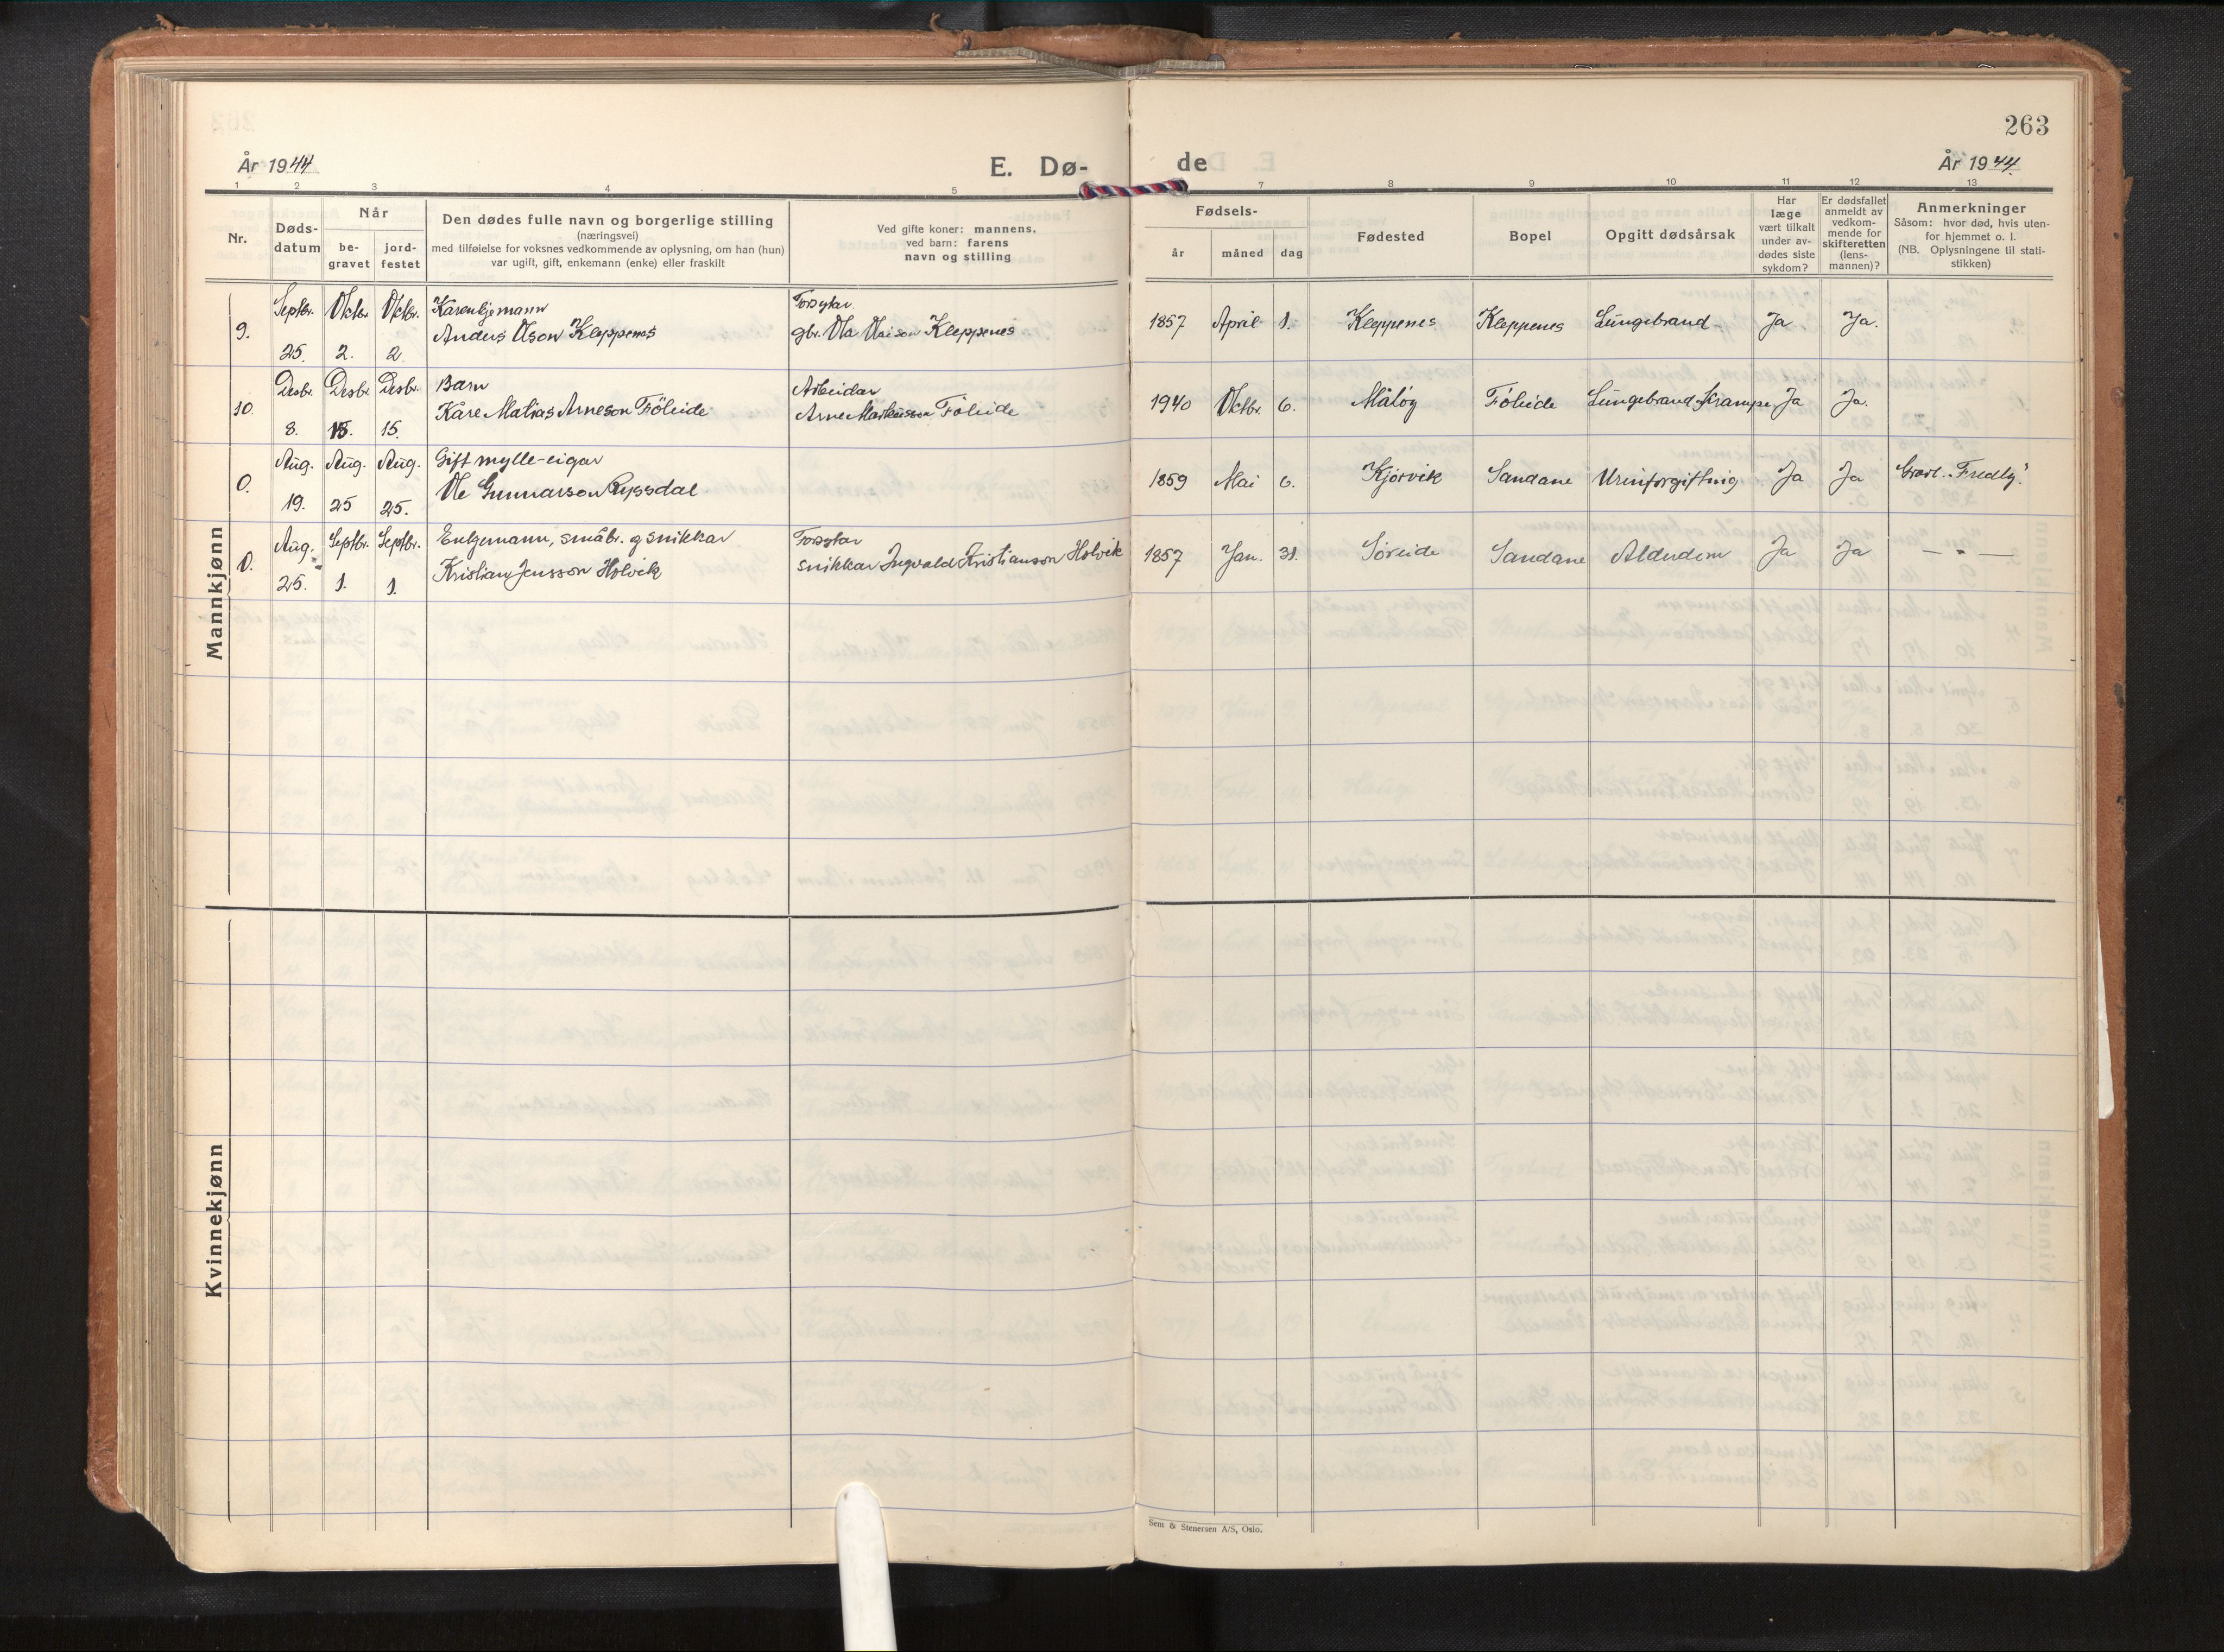 263
År 1944
E. Dø-
de
År 1944.
1 2 3 4 5 7 8 9 10 11 12 13
Nr.
Døds-
datum
Når
be-
gravet
jord-
festet
Den dødes fulle navn og borgerlige stilling
(næringsvei)
med tilføielse for voksnes vedkommende av oplysning, om han (hun)
var ugift, gift, enkemann (enke) eller fraskilt
Ved gifte koner: mannens,
ved barn: farens
navn og stilling
Fødsels-
år måned dag
Fødested
Bopel
Opgitt dødsårsak
Har
læge
vært tilkalt
under av-
dødes siste
sykdom?
Er dødsfallet
anmeldt av
vedkom-
mende for
skifteretten
(lens-
mannen)?
Anmerkninger
Såsom: hvor død, hvis uten-
for hjemmet o. l.
(NB. Oplysningene til stati-
stikken)
Mannkjønn
Septbr. Oktbr. Oktbr. Kårenkjemann Forsytar
9. 25. 2. 2 Anders Olson Kleppenes gbr. Ola Olaison Kleppenes 1857 April 1. Kleppenes Kleppenes Lungebrand Ja Ja.
Desbr. Desbr. Desbr. Barn Arbeidar
10. 8. 15. 15. Kåre Matias Arneson Föleide Arne Markusson Föleide 1940 Oktbr. 6. Måløy Föleide Lungebrand. Krampe Ja Ja.
Aug. Aug. Aug. Gift mylle-eigar
0. 19. 25 25. Ole Gunnarson Ryssdal 1859 Mai 6. Kjörvik Sandane Urinforgiftning Ja Ja Gravl. "Fredly".
Aug. Septbr. Septbr. Enkjemann, småbr. og snikkar Forsytar
0. 25. 1. 1. Kristian Jensson Holvik snikkar Ingvald Kristianson Holvik 1857 Jan. 31. Søreide Sandane Alderdom Ja Ja — " —
Kvinnekjønn
Sem & Stenersen A/S, Oslo.